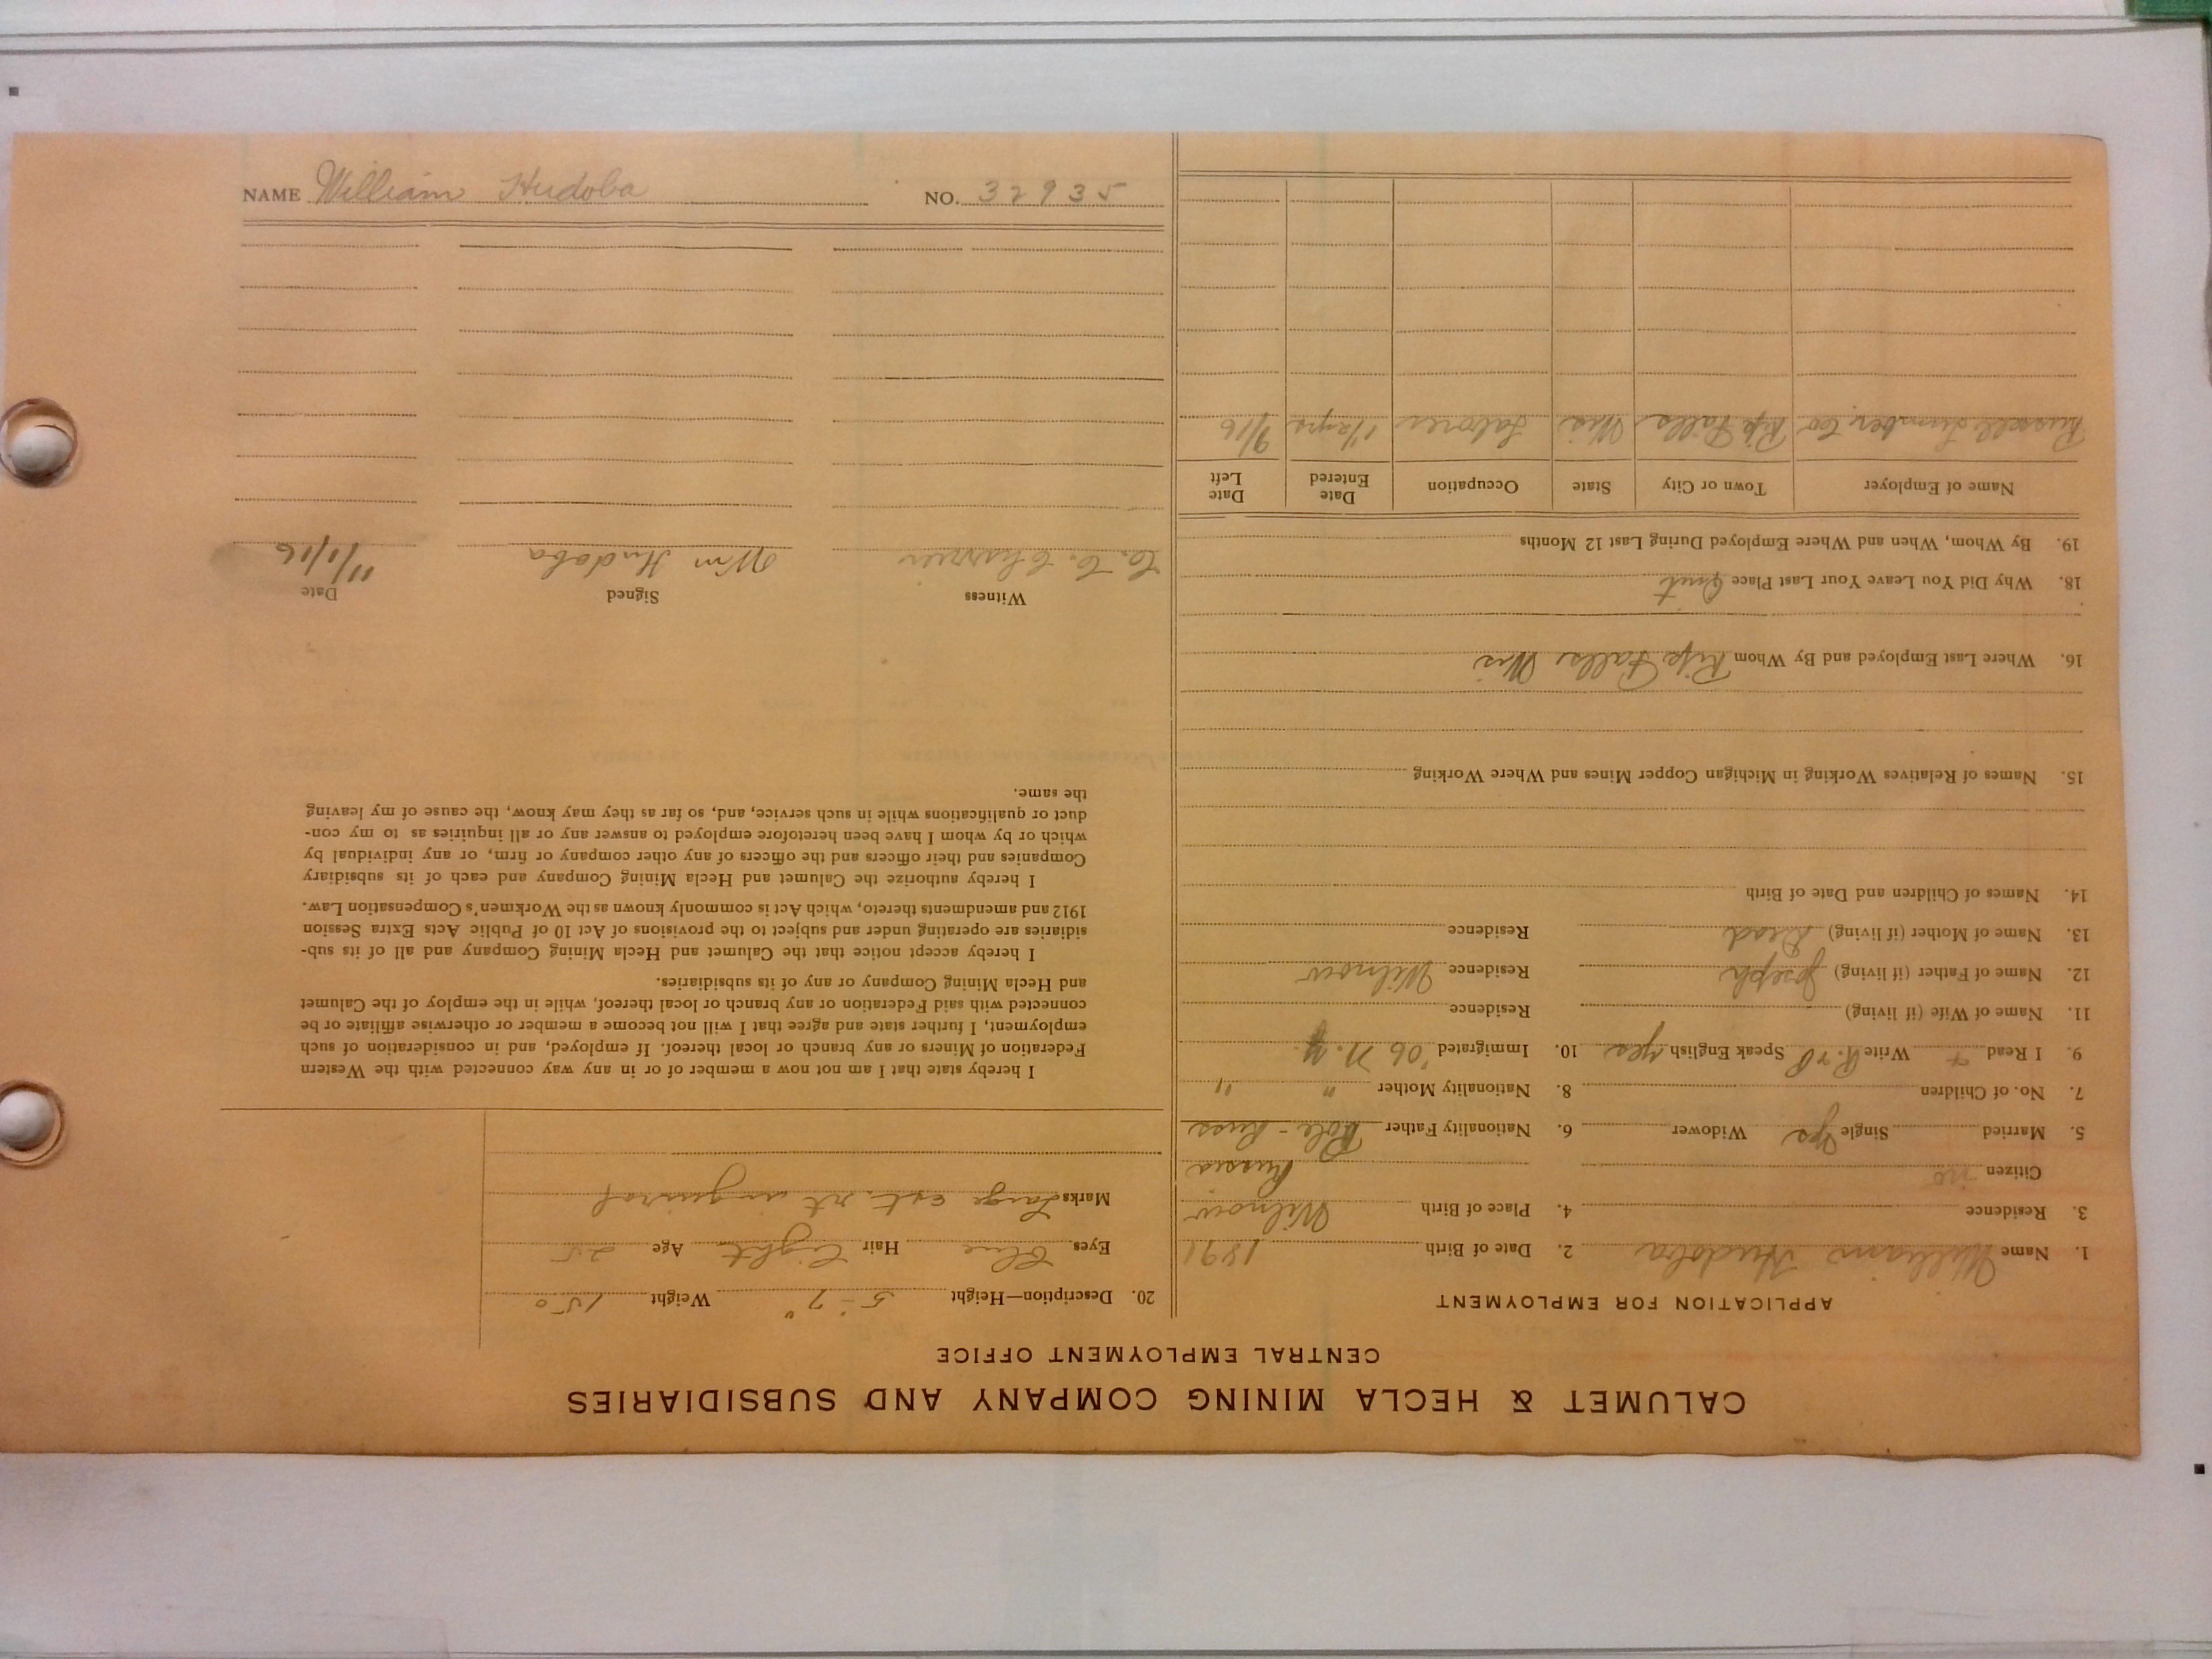 CALUMET & HECLA MINING COMPANY AND SUBSIDIARIES
CENTRAL EMPLOYMENT OFFICE
APPLICATION FOR EMPLOYMENT
1. Name William Hudoba 2. Date of Birth 1891
3. Residence 4. Place of Birth Wilnow
Citizen no Russia
5. Married Single Yes Widower 6. Nationality Father Pole-Russ
7. No. of Children 8. Nationality Mother " "
9. I Read + Write Speak English yes 10. Immigrated '06 N.Y.
11. Name of Wife (if living) Residence
12. Name of Father (if living) Joseph Residence Wilnow
13. Name of Mother (if living) Dead Residence
14. Names of Children and Date of Birth
15. Names of Relatives Working in Michigan Copper Mines and Where Working
16. Where Last Employed and By Whom Falls Wis
18. Why Did You Leave Your Last Place Quit
19. By Whom, When and Where Employed During Last 12 Months
Name of Employer Town or City State Occupation Date Entered Date Left
Russell Lumber Co Falls Wis Laborer 9/16
20. Description—Height 5'-7" Weight 150
Eyes Blue Hair Light Age 25
Marks Large
I hereby state that I am not now a member of or in any way connected with the Western
Federation of Miners or any branch or local thereof. If employed, and in consideration of such
employment, I further state and agree that I will not become a member or otherwise affiliate or be
connected with said Federation or any branch or local thereof, while in the employ of the Calumet
and Hecla Mining Company or any of its subsidiaries.
I hereby accept notice that the Calumet and Hecla Mining Company and all of its sub-
sidiaries are operating under and subject to the provisions of Act 10 of Public Acts Extra Session
1912 and amendments thereto, which Act is commonly known as the Workmen's Compensation Law.
I hereby authorize the Calumet and Hecla Mining Company and each of its subsidiary
Companies and their officers and the officers of any other company or firm, or any individual by
which or by whom I have been heretofore employed to answer any or all inquiries as to my con-
duct or qualifications while in such service, and, so far as they may know, the cause of my leaving
the same.
Witness Signed Date
Wm Hudoba 11/1/16
NAME William Hudoba NO. 32935